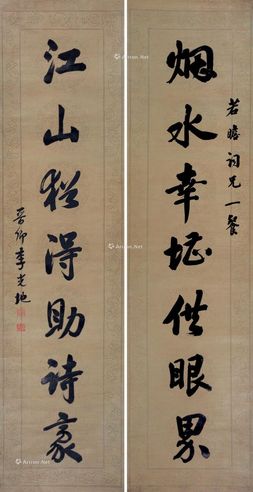 若瞻词兄一餐
烟水幸堪供眼界
江山犹得助诗豪
晋卿李光地
Artron.Net